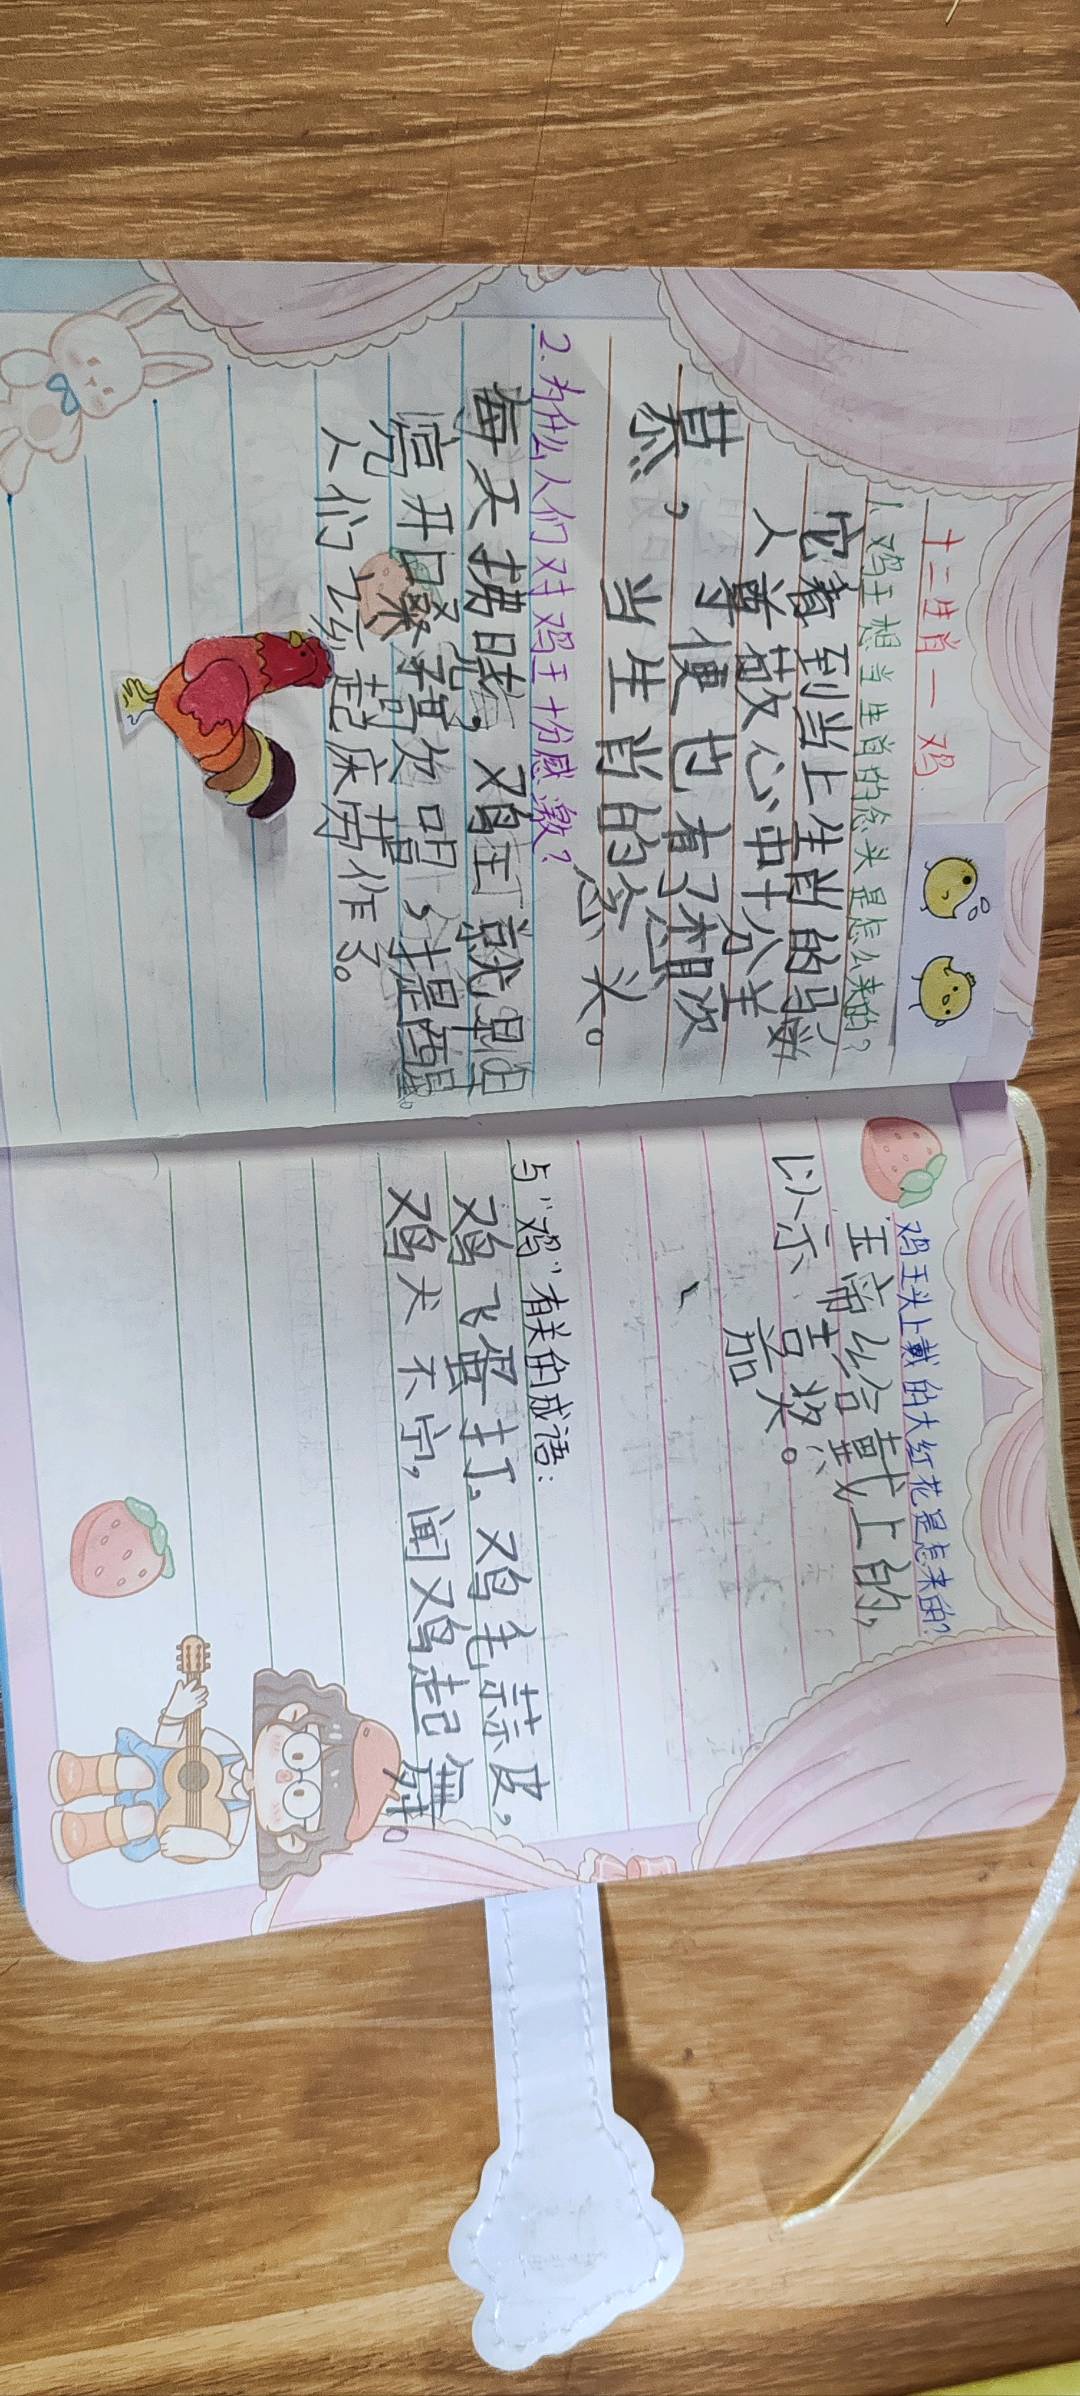 十二生肖一鸡
1.鸡王想当生肖的念头是怎么来的?
它看到当上生肖的马数
人尊敬心中十分羡
慕,得便也有了想欢
当生肖的念头。
2.为什么人们对鸡王十分感激?
每天拂晓,鸡王就早早
亮开嗓子高歌唱,提醒
人们立起床劳作了。
鸡王头上戴的大红花是怎来的?
玉帝给戴上的,
以示喜奖。
嘉
与“鸡”有关的成语:
鸡飞蛋打。鸡毛蒜皮,
鸡犬不宁,闻鸡起舞。